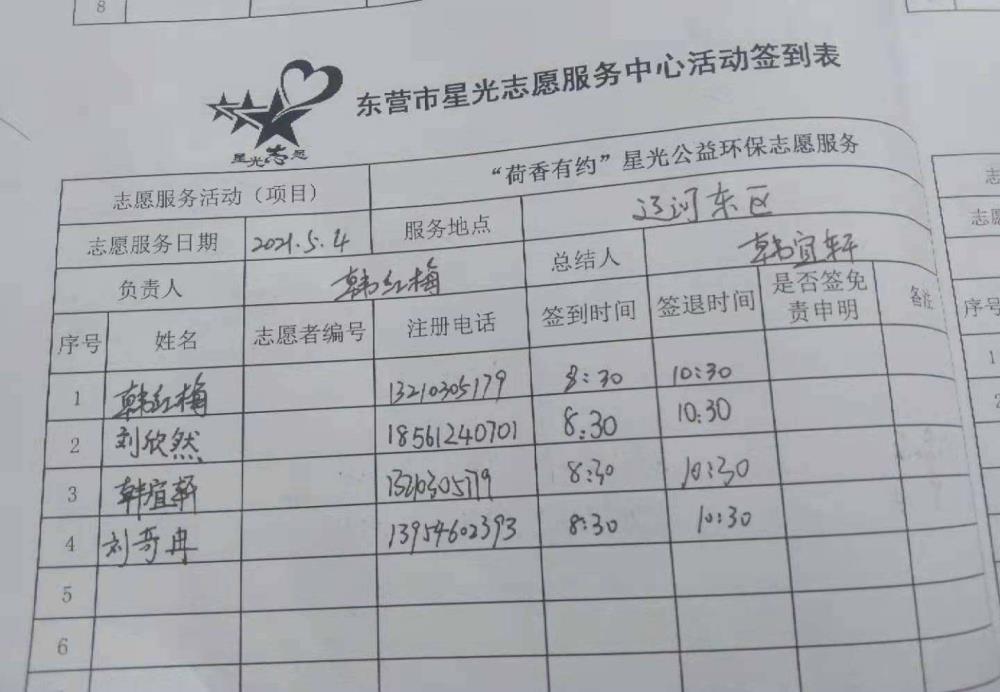 8
东营市星光志愿服务中心活动签到表
星光志愿
志愿服务活动（项目） “荷香有约”星光公益环保志愿服务
志愿服务日期 2021.5.4 服务地点 辽河东区
负责人 韩红梅 总结人 韩宜轩
序号 姓名 志愿者编号 注册电话 签到时间 签退时间 是否签免责申明 备注
1 韩红梅 13210305179 8:30 10:30
2 刘欣然 18561240701 8:30 10:30
3 韩宜轩 13210305179 8:30 10:30
4 刘奇冉 13954602393 8:30 10:30
5
6
志
志愿
序号
1